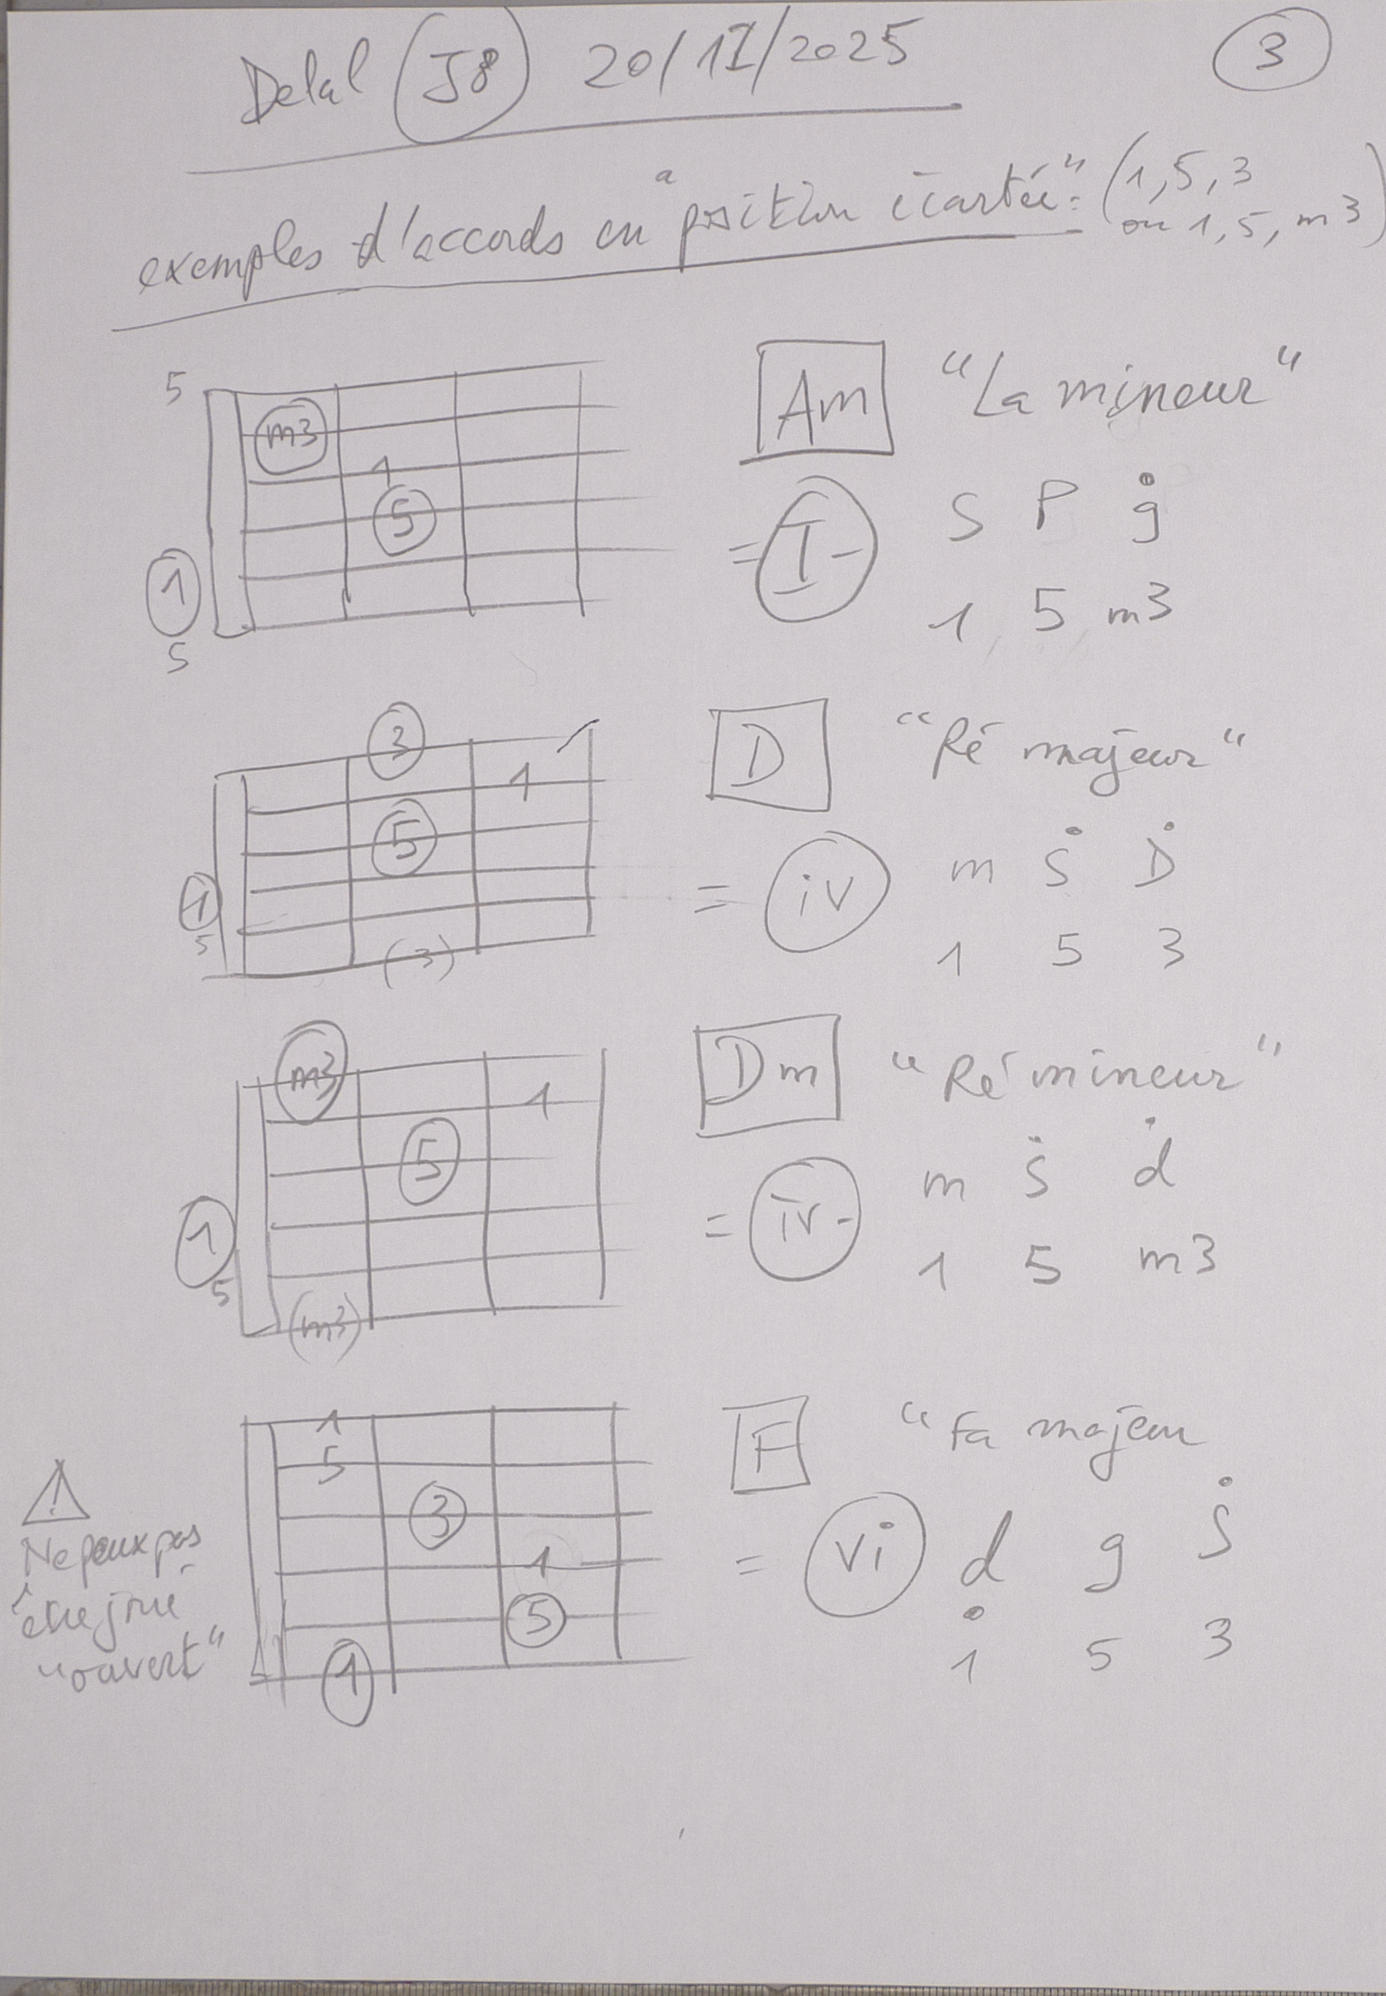 Delal J8 20/11/2025 3
exemples d'accords en "position écartée": (1, 5, 3
ou 1, 5, m3)
5
m3
1
5
1
5
Am "La mineur"
= I- S P ġ
1 5 m3
3
1
5
1
5
(3)
D "Ré majeur"
= iv m Ṡ Ḋ
1 5 3
m3
1
5
1
5
(m3)
Dm "Ré mineur"
= iv- m Ṡ ḋ
1 5 m3
1
5
3
1
5
1
⚠
Ne peux pas
être joué
"ouvert"
F "Fa majeur
= vi d g Ṡ
1 5 3